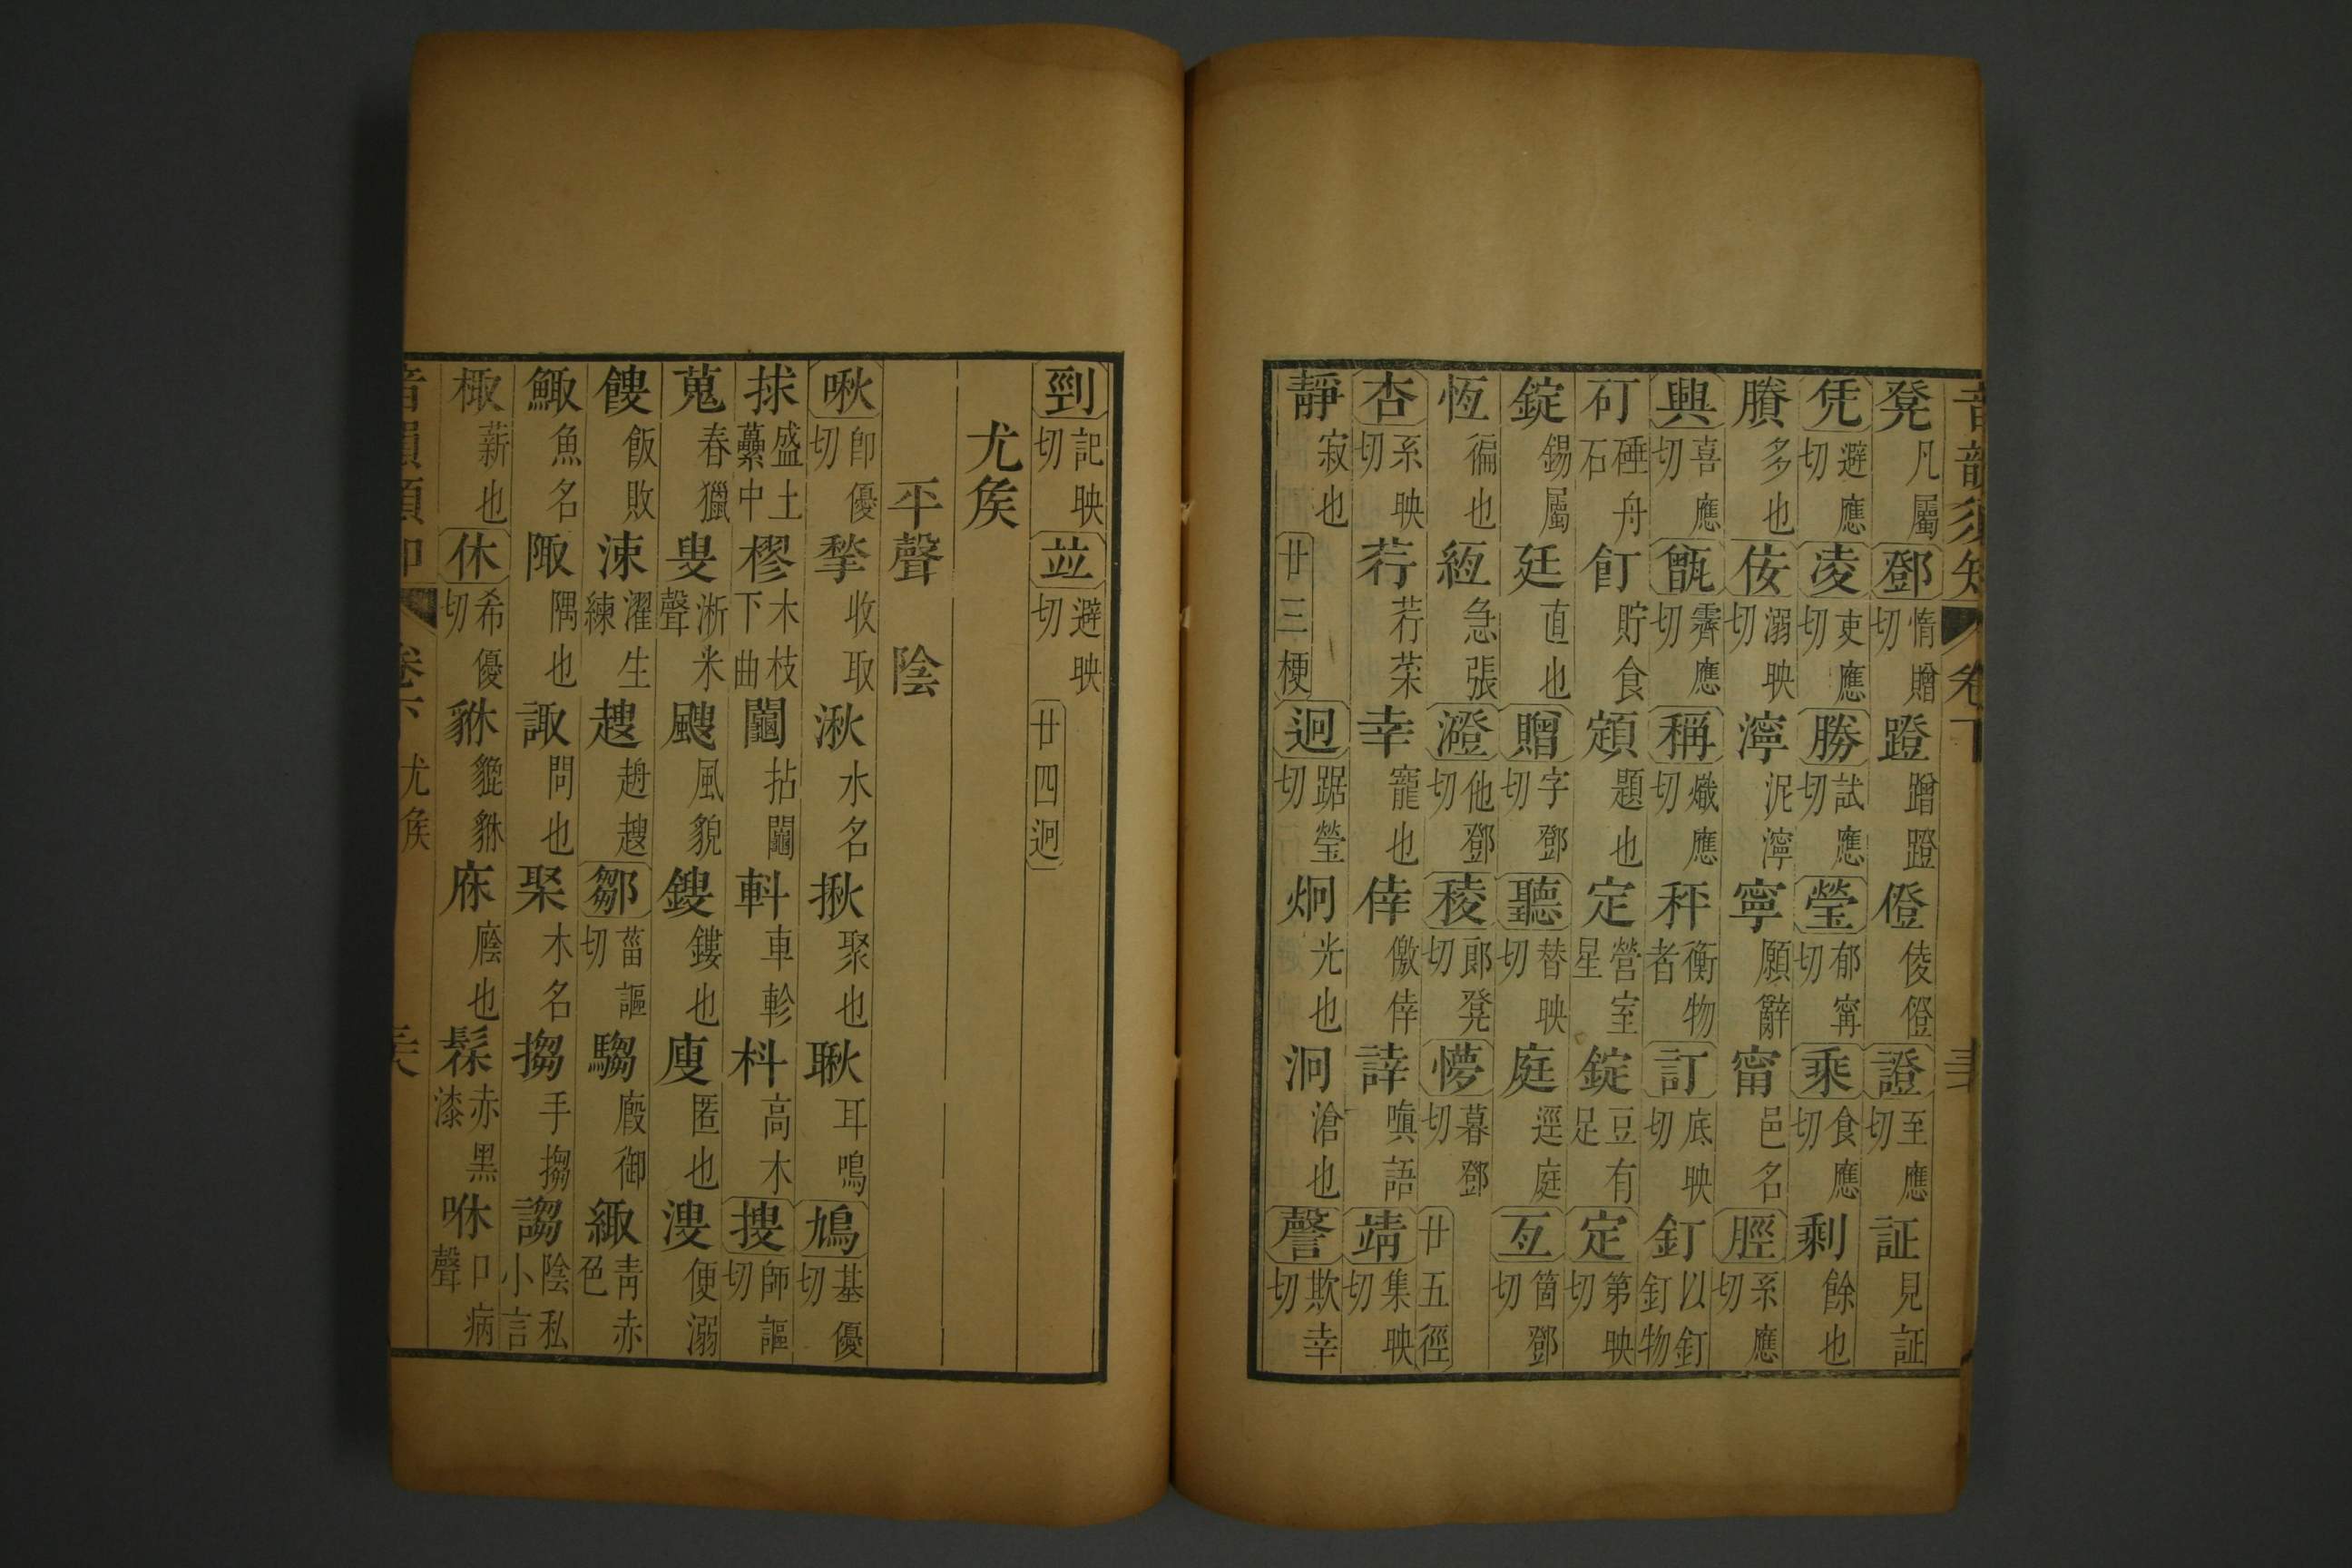 音韻須知 卷下
凳凡屬鄧惰贈切蹬蹭蹬僜倰僜證至應切証見証
凭避應切凌吏應切勝試應切瑩郁甯切乘食應切剩餘也
賸多也佞溺映切濘泥濘寧願辭甯邑名脛系應切
興喜應切甑霽應切稱熾應切秤衡物者訂底映切釘以釘釘物
矴硾舟石飣貯食頲題也定營室星錠豆有足定第映切
錠錫屬廷直也贈字鄧切聽替映切庭逕庭亙箇鄧切
恆徧也緪急張澄他鄧切稜郎凳切懜暮鄧切廿五徑
杏系映切荇荇菜幸寵也倖儌倖諱嗔語靖集映切
靜寂也廿三梗迥踞瑩切炯光也泂滄也謦欺幸切
剄記映切並避映切廿四迥
尤侯
平聲 陰
啾卽優切揫收取湫水名揪聚也聫耳鳴鳩基優切
捄盛土虆中樛木枝下曲鬮拈鬮䡖車軫朻高木搜師謳切
蒐春獵叟淅米聲颼風貌鎪鏤也廋匿也溲便溺
餿飯敗涑濯生練趮趙趮鄒菑謳切騶廄御緅靑赤色
鯫魚名陬隅也諏問也棸木名搊手搊謅陰私小言
棷薪也休希優切貅貔貅庥廕也髹赤黑漆咻口病聲
音韻須知 卷下 尤侯